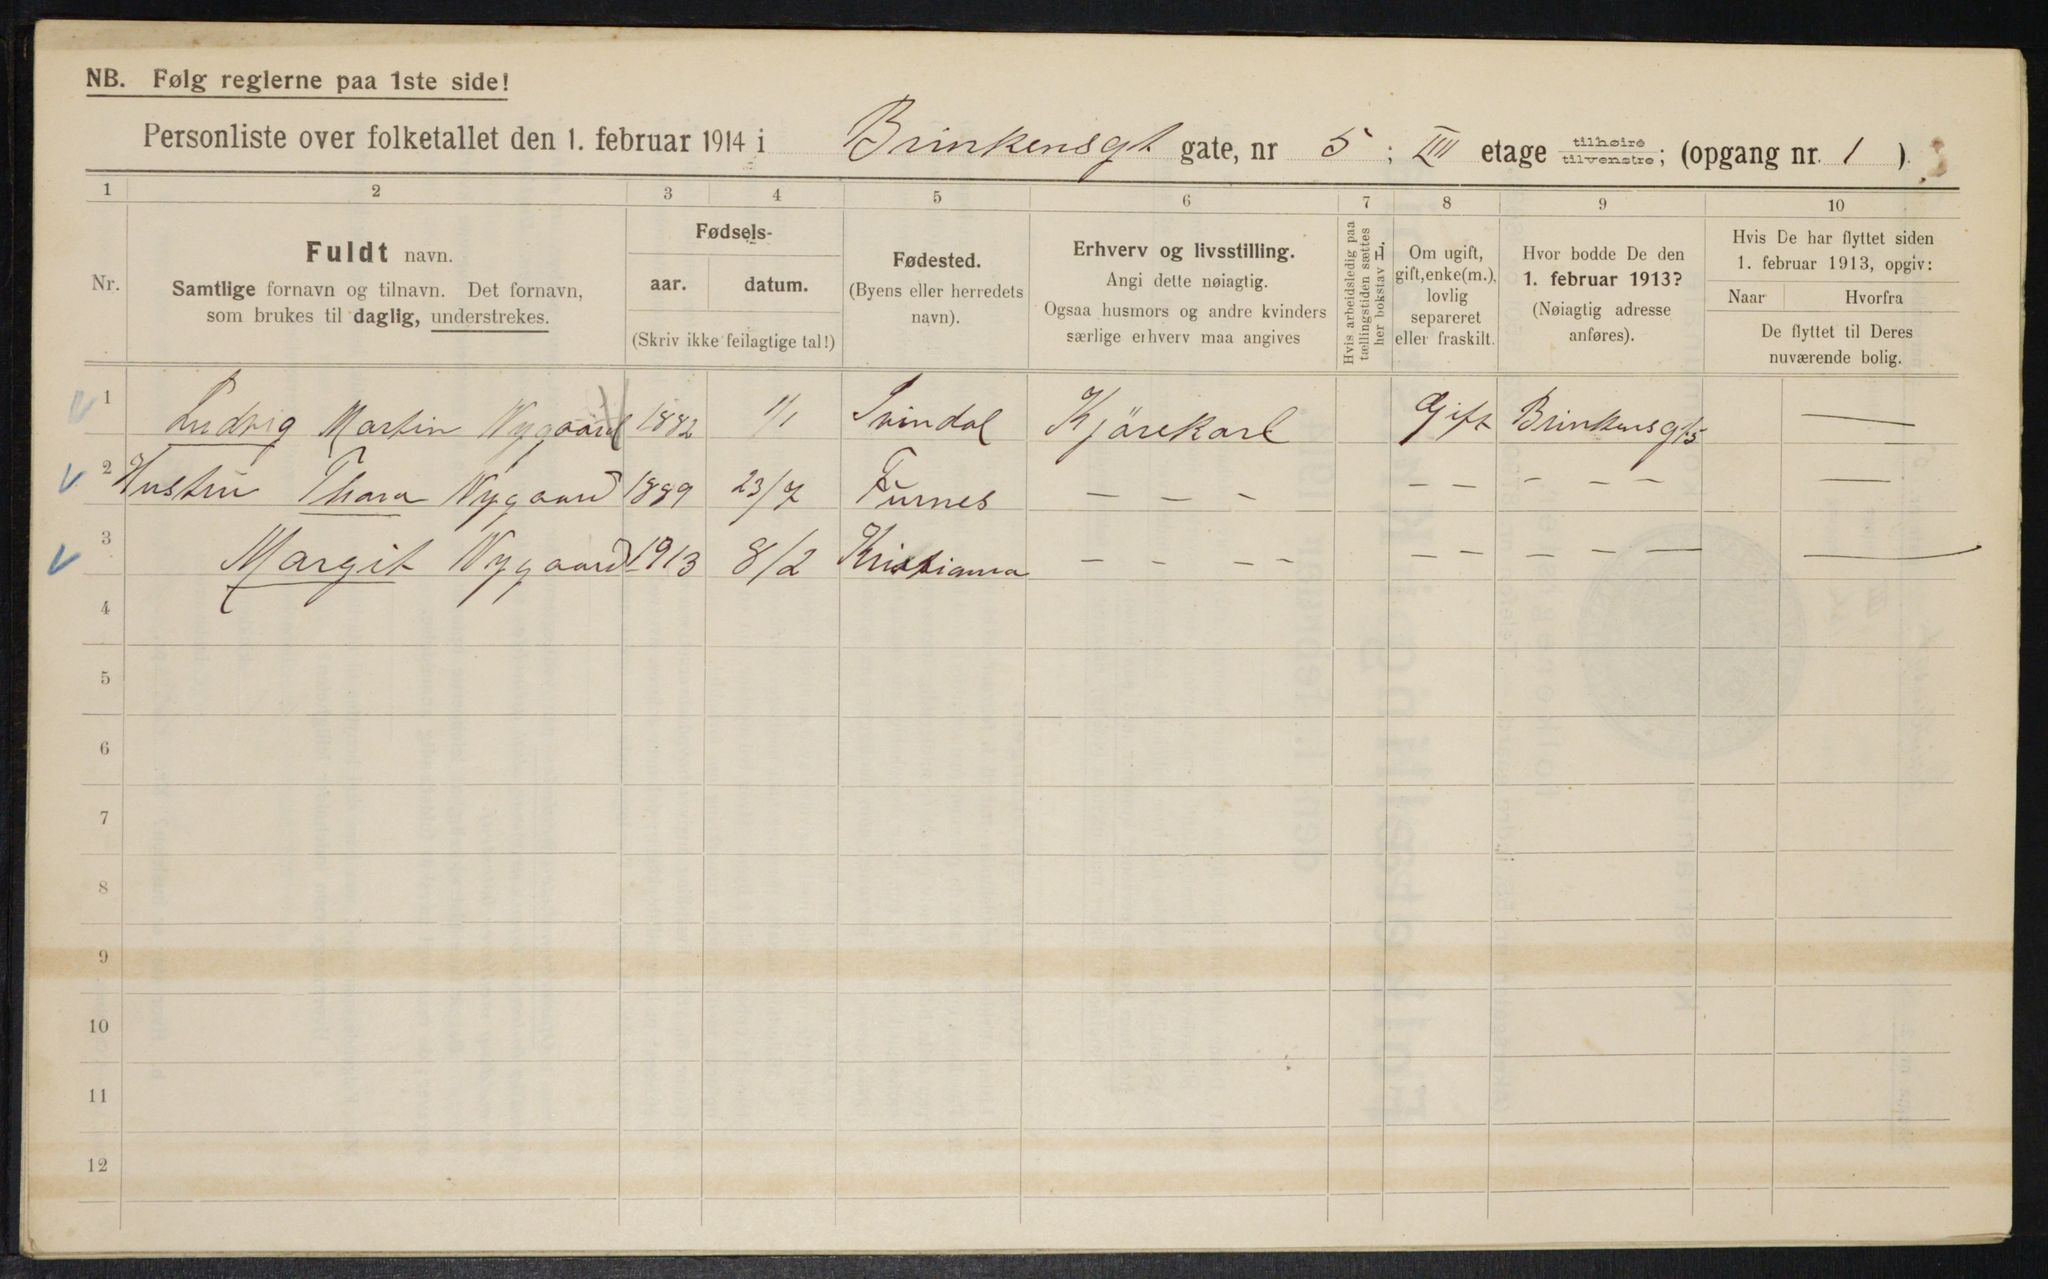 NB. Følg reglerne paa 1ste side!
Personliste over folketallet den 1. februar 1914 i Brinkensgt gate, nr 5 ; III etage tilhøire tilvenstre; (opgang nr. 1 ).
1 2 3 4 5 6 7 8 9 10
Nr.
Fuldt navn.
Samtlige fornavn og tilnavn. Det fornavn,
som brukes til daglig, understrekes.
Fødsels-
aar. datum.
(Skriv ikke feilagtige tal!)
Fødested.
(Byens eller herredets
navn).
Erhverv og livsstilling.
Angi dette nøiagtig.
Ogsaa husmors og andre kvinders
særlige erhverv maa angives
Hvis arbeidsledig paa
tællingstiden sættes
her bokstav L.
Om ugift,
gift, enke(m.),
lovlig
separeret
eller fraskilt.
Hvor bodde De den
1. februar 1913?
(Nøiagtig adresse
anføres).
Hvis De har flyttet siden
1. februar 1913, opgiv:
Naar Hvorfra
De flyttet til Deres
nuværende bolig.
1 Ludvig Martin Nygaard 1882 1/1 Svindal Kjørekarl Gift Brinkensgt 5 —
2 Hustru Thora Nygaard 1889 23/7 Furnes — — — — — — — — —
3 Margit Nygaard 1913 8/2 Kristiania — — — — — — — — — —
4
5
6
7
8
9
10
11
12